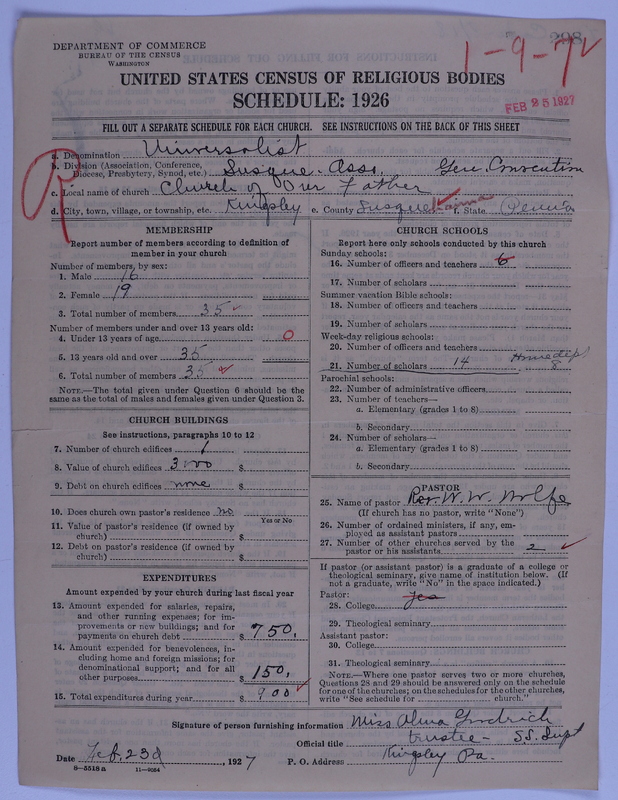 298
1-9-7
FEB 25 1927
DEPARTMENT OF COMMERCE
BUREAU OF THE CENSUS
WASHINGTON
UNITED STATES CENSUS OF RELIGIOUS BODIES
SCHEDULE: 1926
FILL OUT A SEPARATE SCHEDULE FOR EACH CHURCH. SEE INSTRUCTIONS ON THE BACK OF THIS SHEET
R
a. Denomination Universalist
b. Division (Association, Conference,
Diocese, Presbytery, Synod, etc.) Susque. Asso. Gen. Convention
c. Local name of church Church of Our Father
d. City, town, village, or township, etc. Kingsley e. County Susquehanna f. State Penna
MEMBERSHIP
Report number of members according to definition of
member in your church
Number of members, by sex:
1. Male 16
2. Female 19
3. Total number of members 35
Number of members under and over 13 years old:
4. Under 13 years of age 0
5. 13 years old and over 35
6. Total number of members 35
NOTE.—The total given under Question 6 should be the
same as the total of males and females given under Question 3.
CHURCH BUILDINGS
See instructions, paragraphs 10 to 12
7. Number of church edifices 1
8. Value of church edifices 3000 $
9. Debt on church edifices none $
10. Does church own pastor's residence no
Yes or No
11. Value of pastor's residence (if owned by
church) $
12. Debt on pastor's residence (if owned by
church) $
EXPENDITURES
Amount expended by your church during last fiscal year
13. Amount expended for salaries, repairs,
and other running expenses; for im-
provements or new buildings; and for
payments on church debt $ 750.
14. Amount expended for benevolences, in-
cluding home and foreign missions; for
denominational support; and for all
other purposes $ 150.
15. Total expenditures during year $ 900
CHURCH SCHOOLS
Report here only schools conducted by this church
Sunday schools:
16. Number of officers and teachers 6
17. Number of scholars
Summer vacation Bible schools:
18. Number of officers and teachers
19. Number of scholars
Week-day religious schools:
20. Number of officers and teachers
21. Number of scholars 14 Home dept 8
Parochial schools:
22. Number of administrative officers
23. Number of teachers—
a. Elementary (grades 1 to 8)
b. Secondary
24. Number of scholars—
a. Elementary (grades 1 to 8)
b. Secondary
PASTOR
25. Name of pastor Rev. W. W. Wolfe
(If church has no pastor, write "None")
26. Number of ordained ministers, if any, em-
ployed as assistant pastors
27. Number of other churches served by the
pastor or his assistants 2
If pastor (or assistant pastor) is a graduate of a college or
theological seminary, give name of institution below. (If
not a graduate, write "No" in the space indicated.)
Pastor:
28. College Yes
29. Theological seminary
Assistant pastor:
30. College
31. Theological seminary
NOTE.—Where one pastor serves two or more churches,
Questions 28 and 29 should be answered only on the schedule
for one of the churches; on the schedules for the other churches,
write "See schedule for church."
Signature of person furnishing information Miss Alma Goodrich
Official title trustee - S.S. Supt
Date Feb. 23d, 1927 P. O. Address Kingsley Pa.
8-5518a 11-9064